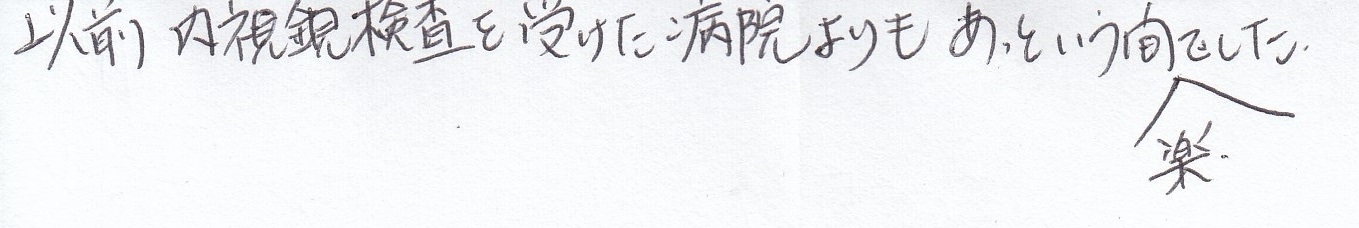 以前 内視鏡検査を受けた病院よりも あっという間でした.
楽.